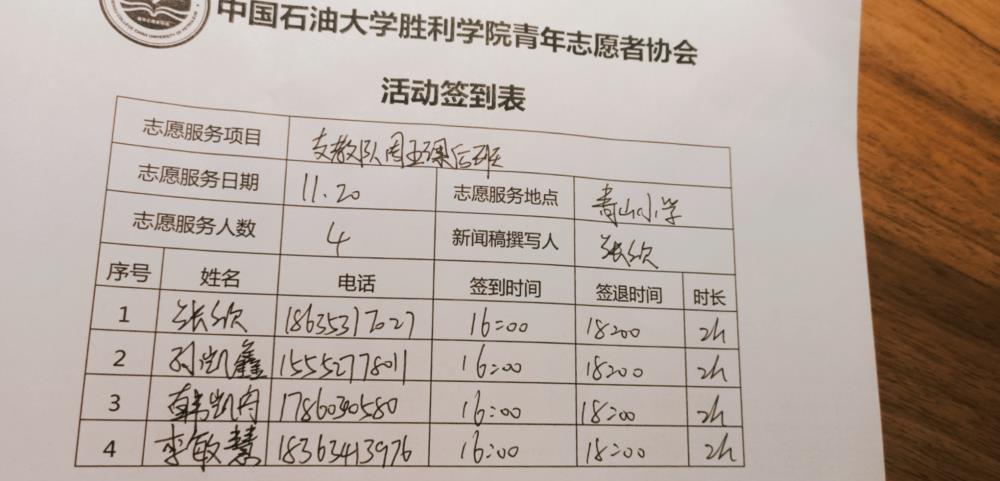 中国石油大学胜利学院青年志愿者协会
活动签到表
志愿服务项目 支教队周五课后班
志愿服务日期 11.20 志愿服务地点 青山小学
志愿服务人数 4 新闻稿撰写人 张欣
序号 姓名 电话 签到时间 签退时间 时长
1 张欣 18635317027 16:00 18:00 2h
2 孙凯鑫 15552778011 16:00 18:00 2h
3 韩凯 1786030580 16:00 18:00 2h
4 李敏慧 18363413976 16:00 18:00 2h